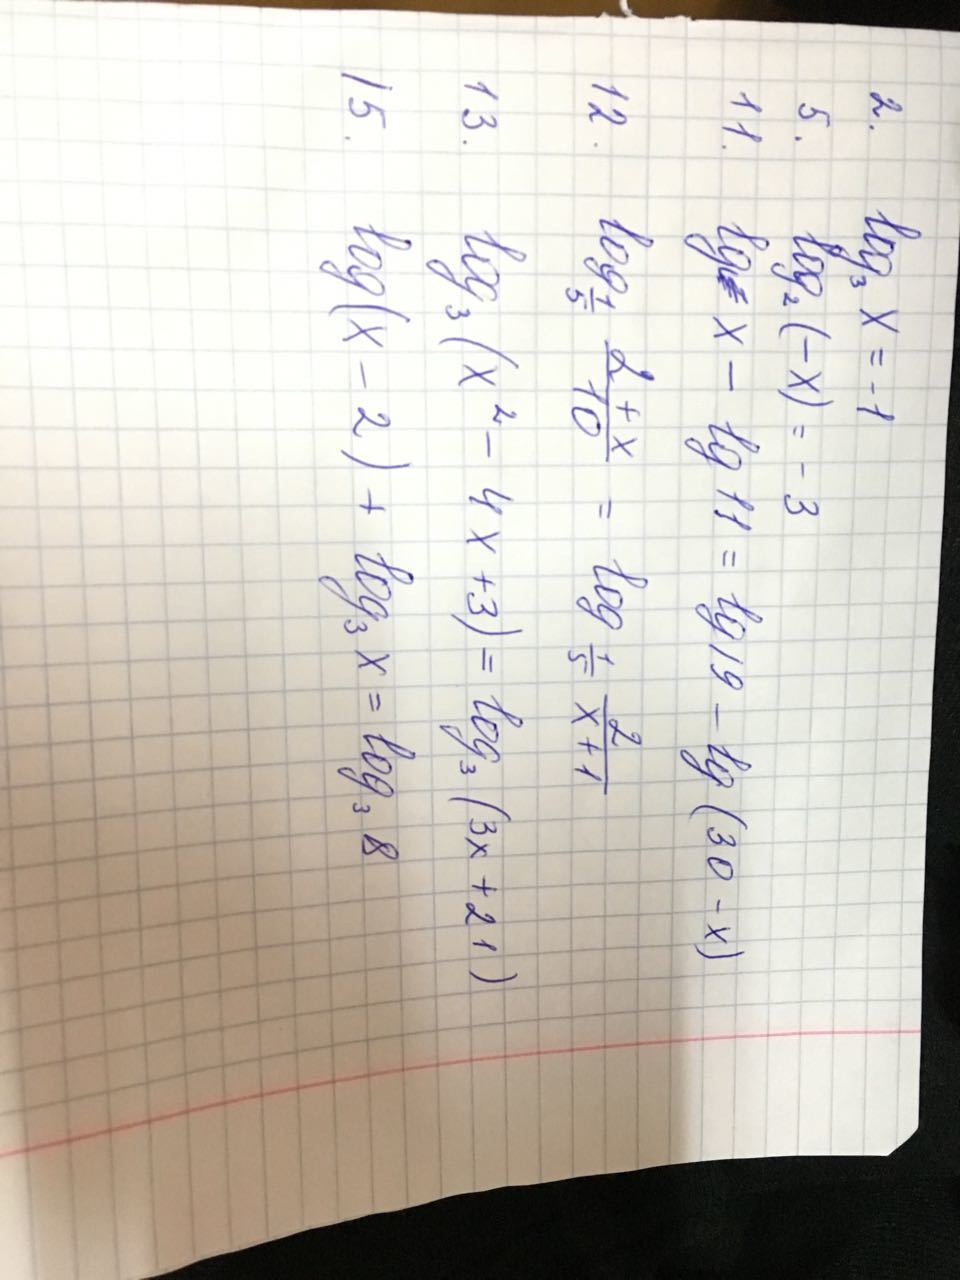 2. log₃ x = -1
5. log₂ (-x) = -3
11. lg x - lg 11 = lg 19 - lg (30 - x)
12. log_{1/5} (2+x)/10 = log_{1/5} 2/(x+1)
13. log₃ (x² - 4x + 3) = log₃ (3x + 21)
15. log (x - 2) + log₃ x = log₃ 8